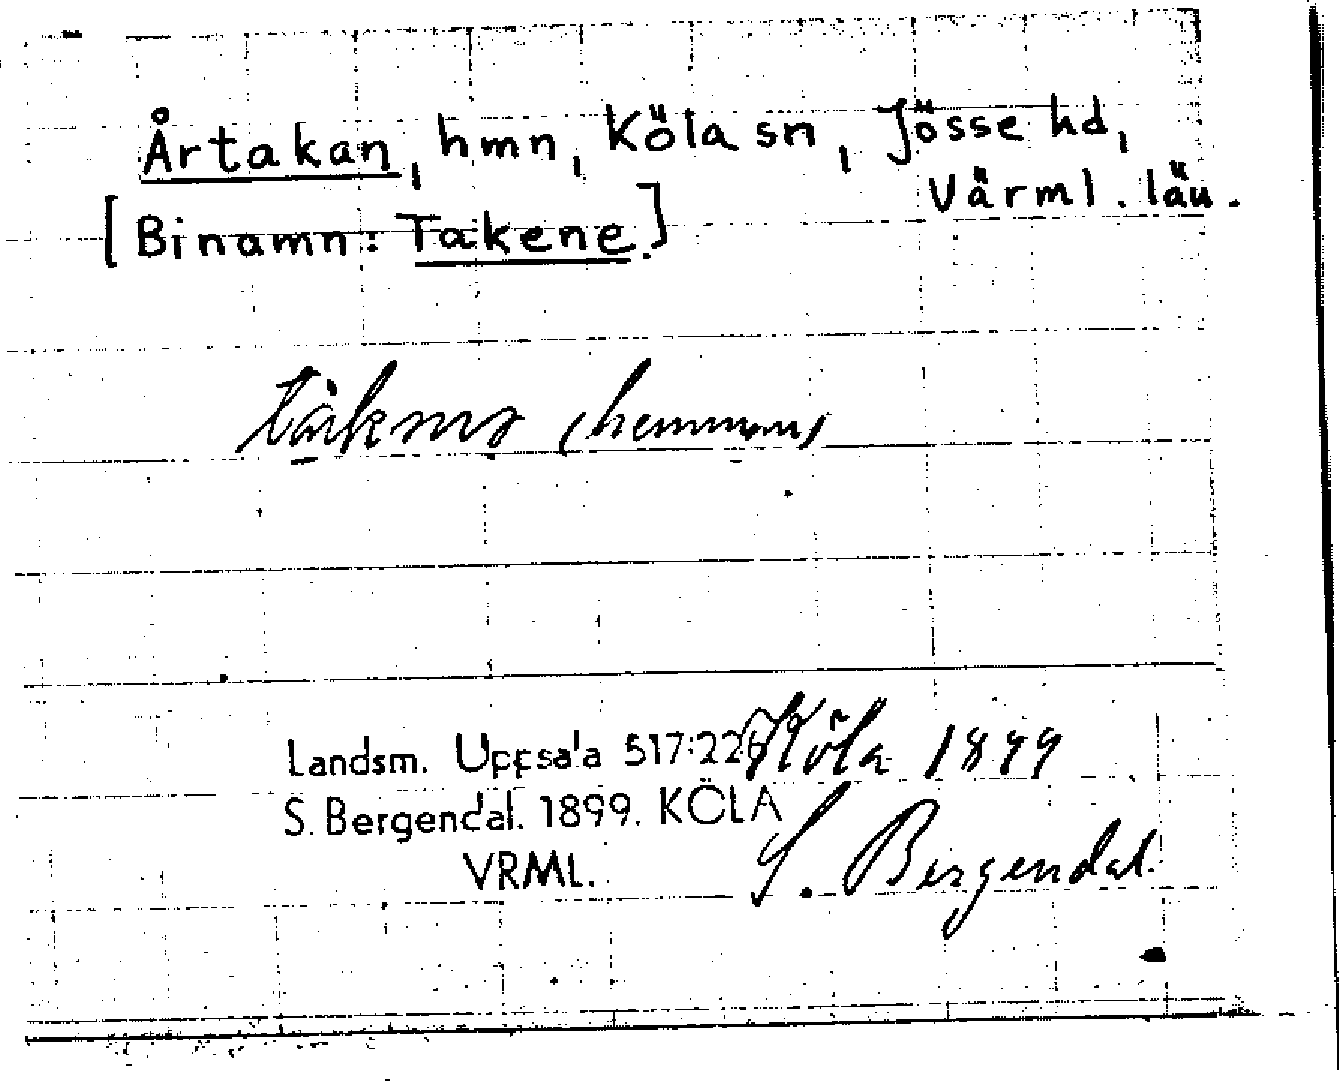 Årtakan, hmn, Köla sn, Jösse hd,
Värml. län.
[Binamn: Takene.]
(hemman)
Landsm. Uppsala 517:226 Köla 1899
S. Bergendal. 1899. KÖLA
VRML. S. Bergendal.